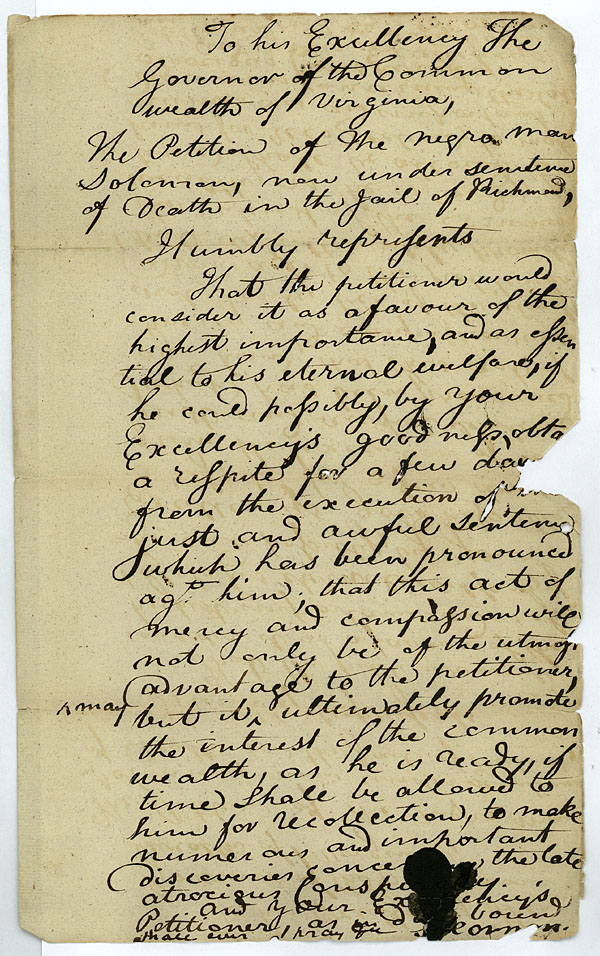 To his Excellency The
Governor of the Common
wealth of Virginia,
The Petition of the negro man
Solomon, now under sentence
of Death in the Jail of Richmond,
Humbly represents
That the petitioner would
consider it as a favour of the
highest importance, and as essen
tial to his eternal welfare, if
he could possibly, by your
Excellency's goodness, obta
a respite for a few da
from the execution of
just and awful sentence
which has been pronounced
agt. him; that this act of
mercy and compassion will
not only be of the utmos
advantage to the petitioner,
but it ^ may ultimately promote
the interest of the common
wealth, as he is ready, if
time shall be allowed to
him for recollection, to make
numerous and important
discoveries the late
atrocious
and your
Petitioner, as in bound
shall ever pray